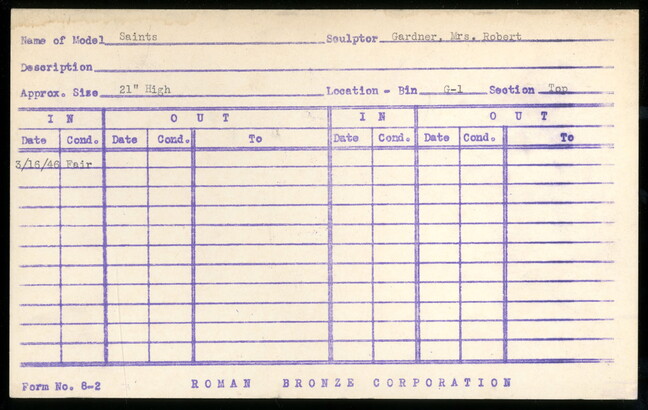 Name of Model Saints Sculptor Gardner, Mrs. Robert
Description
Approx. Size 21" High Location - Bin G-1 Section Top
I N O U T I N O U T
Date Cond. Date Cond. To Date Cond. Date Cond. To
3/16/46 Fair
Form No. 8-2 ROMAN BRONZE CORPORATION